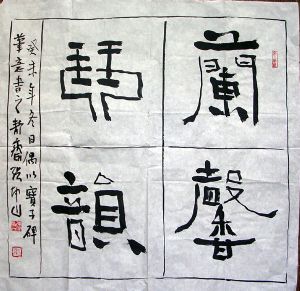 蘭馨
琴韻
癸未年冬日偶以寶子碑
筆意書之